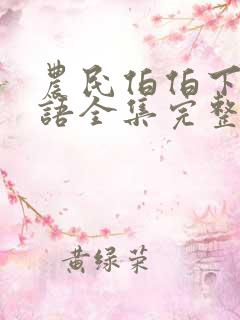 農民伯伯下
語全集完整
黄绿荣